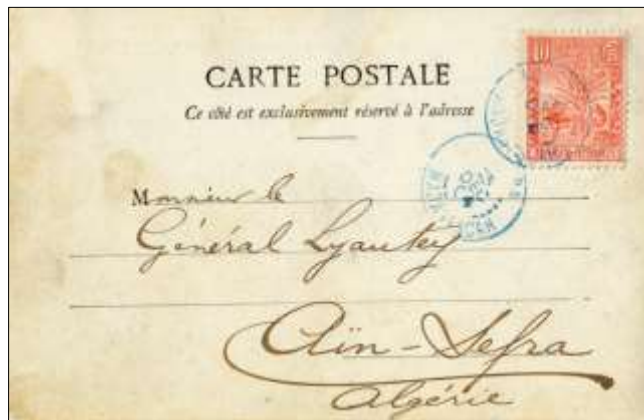 10
CARTE POSTALE
Ce côté est exclusivement réservé à l'adresse
Monsieur le
Général Lyautey
Aïn-Sefra
Algérie